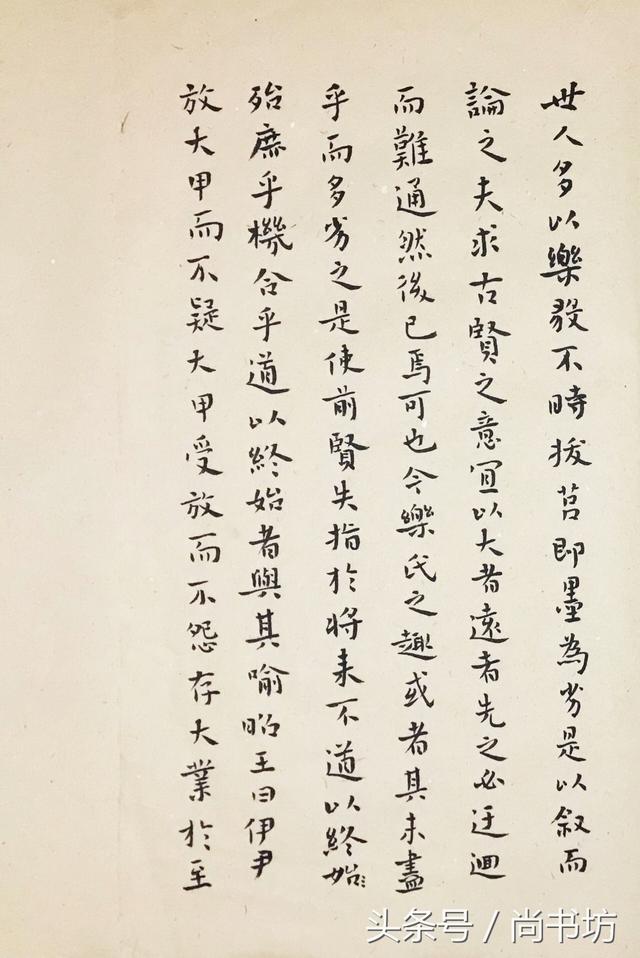 世人多以樂毅不時拔莒即墨為劣是以叙而
論之夫求古賢之意宜以大者遠者先之必迂迴
而難通然後已焉可也今樂氏之趣或者其未盡
乎而多劣之是使前賢失指於將来不道以終始
殆庶乎機合乎道以終始者與其喻昭王曰伊尹
放大甲而不疑大甲受放而不怨存大業於至
头条号 / 尚书坊